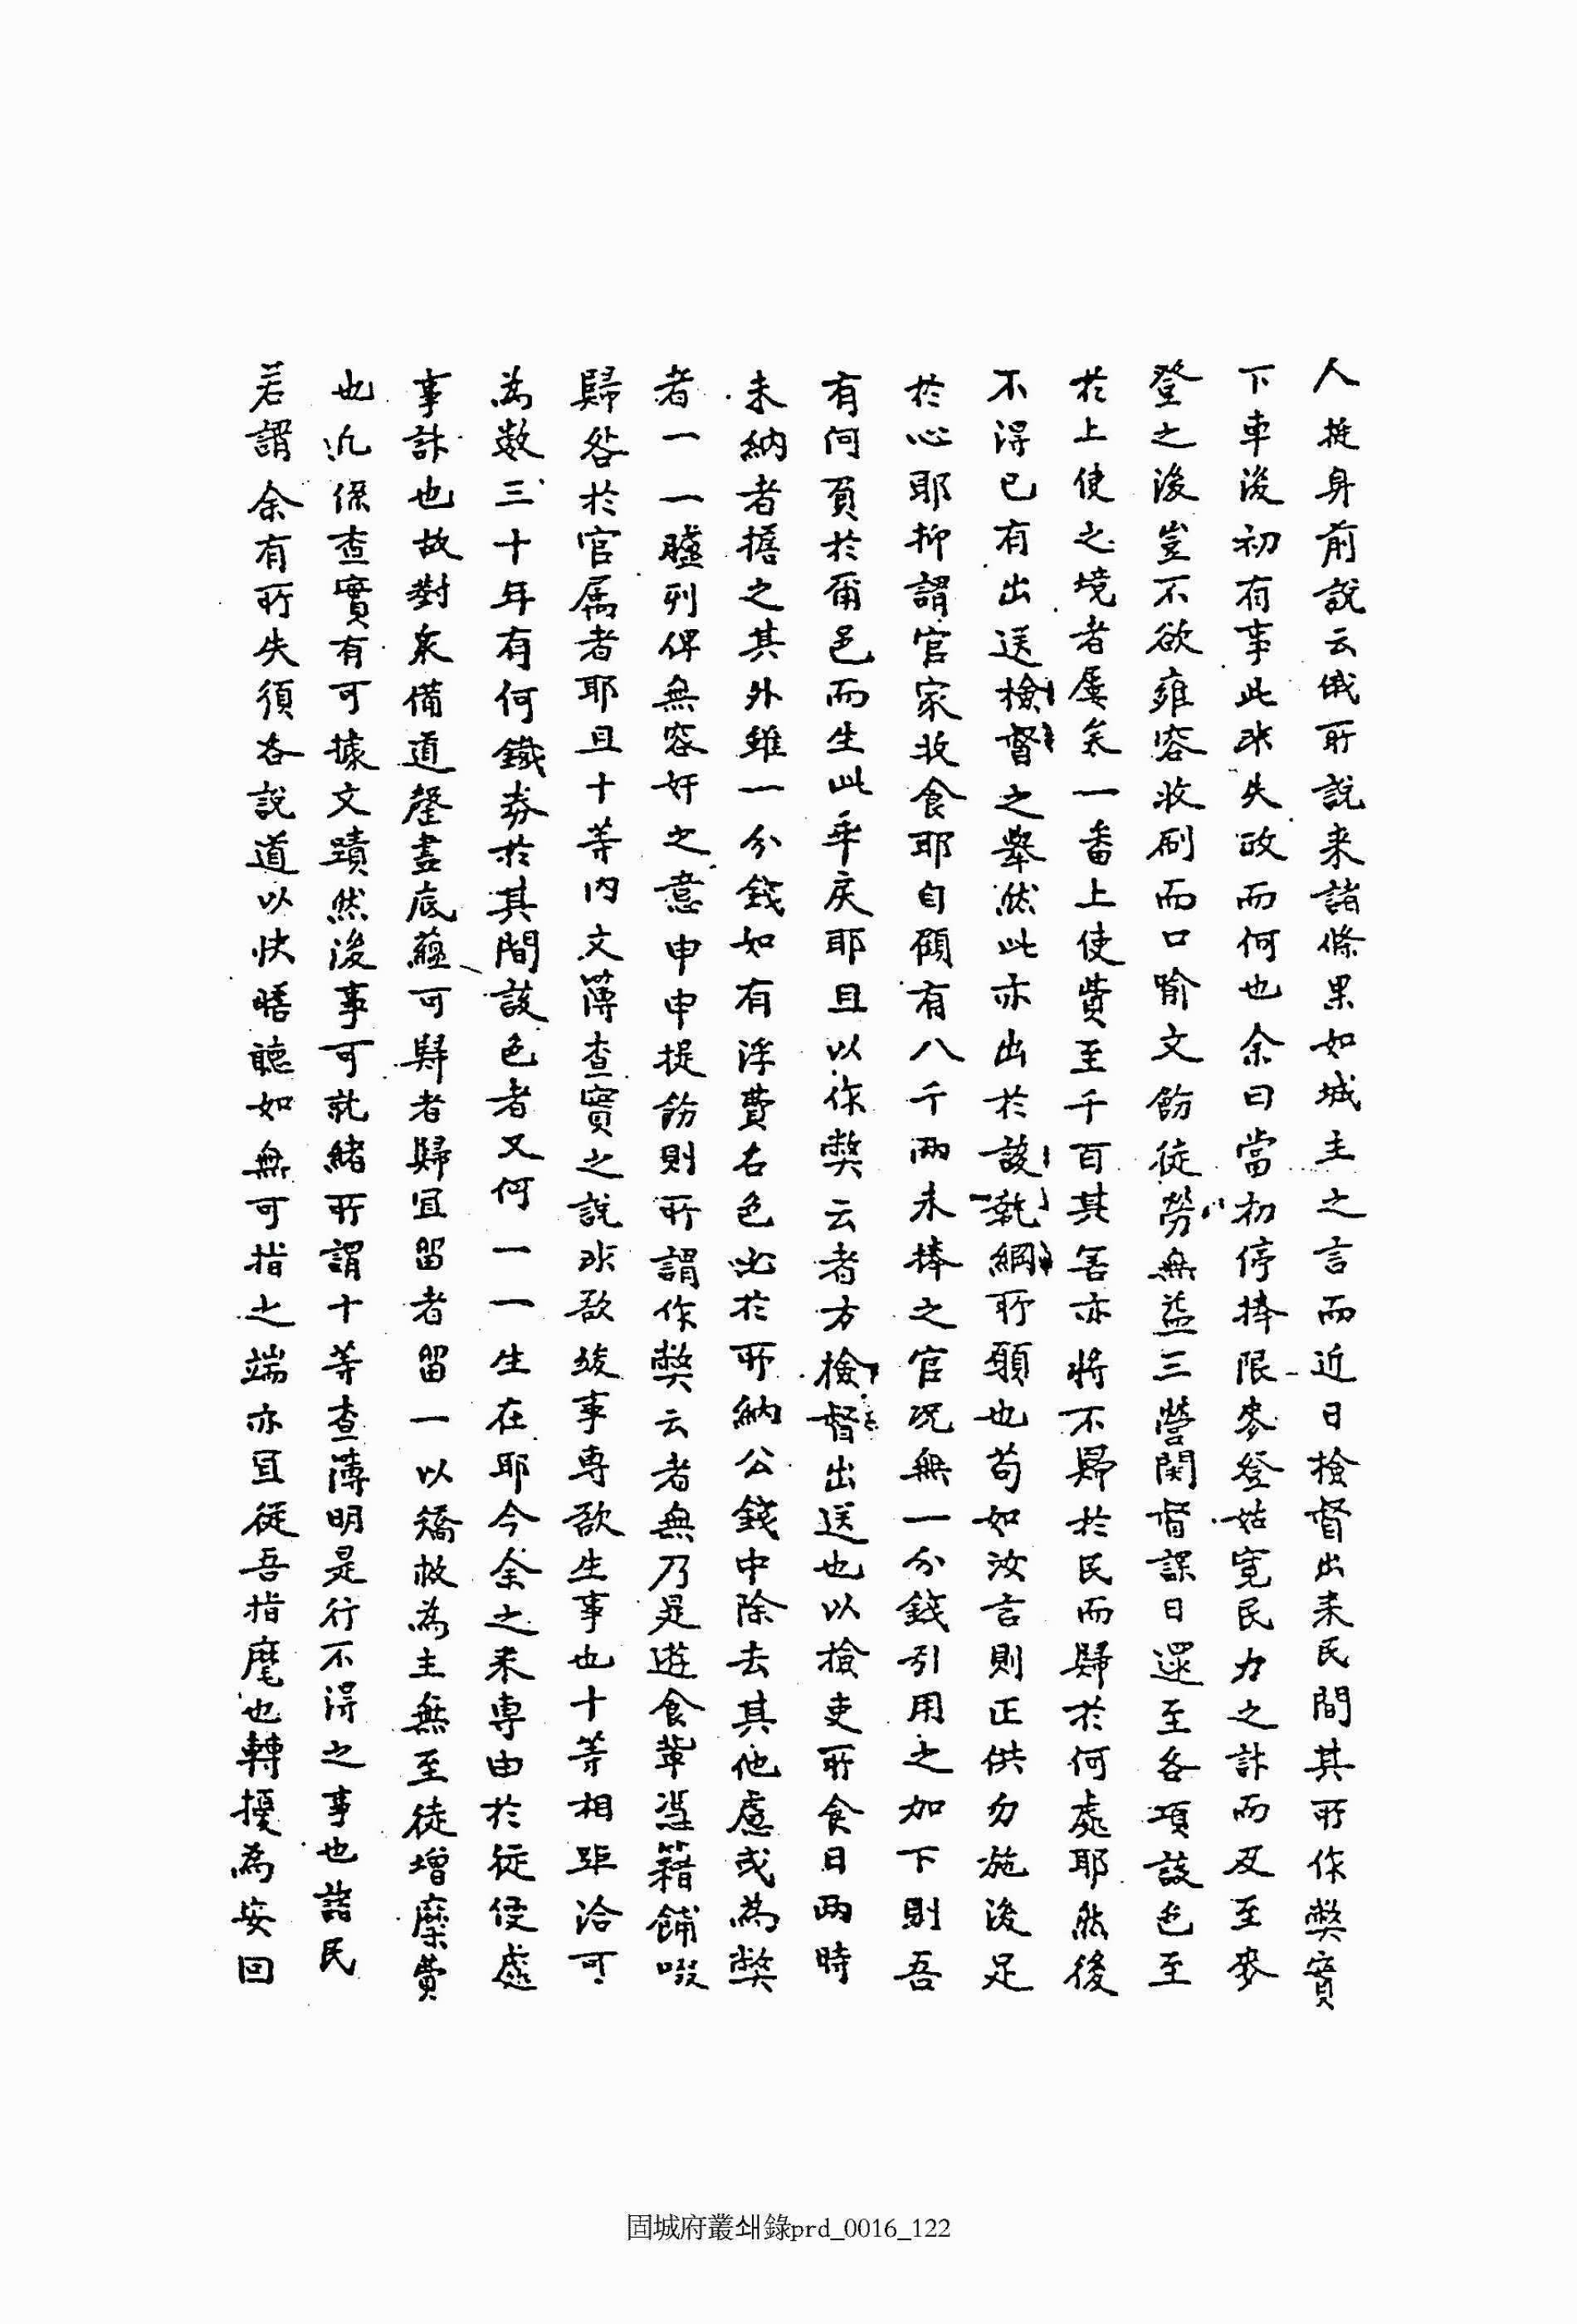 人挺身前說云俄所說来諸條果如城主之言而近日檢督出来民間其所作弊實
下車後初有事此非失政而何也余曰當初停捧限麥登姑寬民力之計而及至麥
登之後豈不欲雍容收刷而口喻文飭徒勞無益三營関督課日還至各項該色至
於上使之境者屡矣一番上使費至千百其害亦将不歸於民而歸於何處耶然後
不得已有出送檢督之舉然此亦出於該執綱所願也苟如汝言則正供勿施後足
於心耶抑謂官家收食耶自顧有八千兩未捧之官况無一分錢引用之加下則吾
有何負於爾邑而生此乖戾耶且以作弊云者方檢督出送也以檢吏所食日兩時
未納者擔之其外雖一分錢如有浮費右色比於所納公錢中除去其他慮或為弊
者一一臚列俾無容奸之意申申提飭則所謂作弊云者無乃是遊食輩憑籍餔啜
歸咎於官属者耶且十等內文簿查實之說非欲竣事専欲生事也十等相距洽可
為數三十年有何鐵券於其間該色者又何一一生在耶今余之来専由於從便處
事計也故對衆備道罄盡底蘊可歸者歸宜留者留一以矯救為主無至徒增糜費
也凡係查實有可據文蹟然後事可就緒所謂十等查簿明是行不得之事也諸民
若謂余有所失須各說道以快晤聽如無可指之端亦宜從吾指麾也轉擾為安回